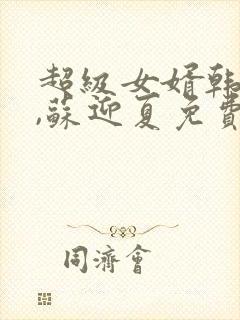 超級女婿韩
,蘇迎夏免費
同濟會